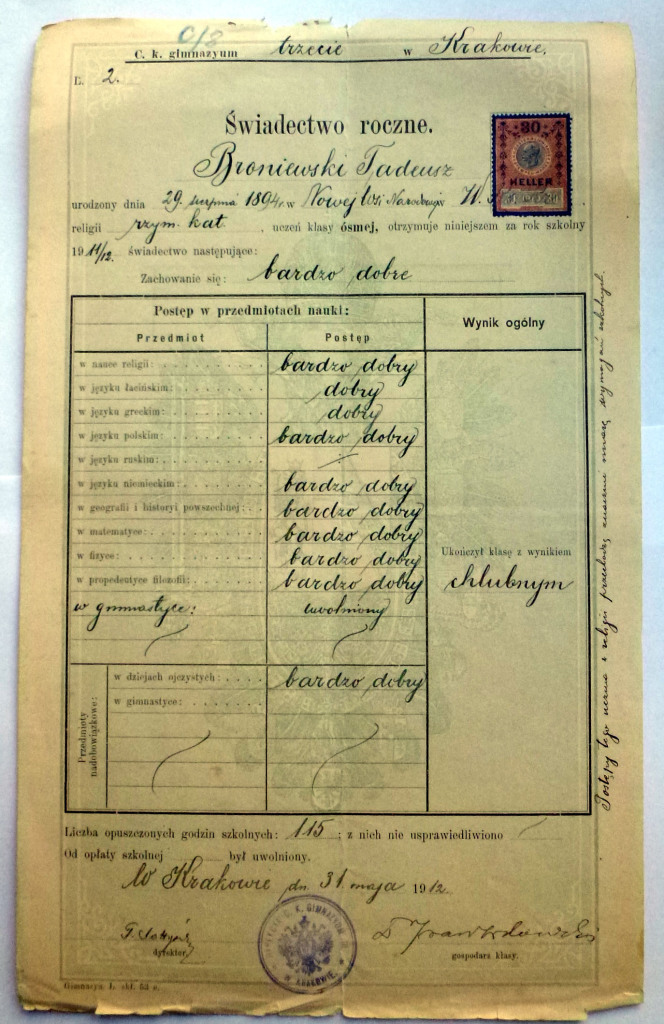 C/8
C. k. gimnazyum trzecie w Krakowie.
L. 2.
Świadectwo roczne.
30
HELLER
Broniewski Tadeusz
urodzony dnia 29. sierpnia 1894 r. w Nowej Wsi Narodowej
religii rzym. kat. , uczeń klasy ósmej, otrzymuje niniejszem za rok szkolny
1911/12. świadectwo następujące:
Zachowanie się: bardzo dobre
Postęp w przedmiotach nauki:
Wynik ogólny
Przedmiot Postęp
w nauce religii: bardzo dobry
w języku łacińskim: dobry
w języku greckim: dobry
w języku polskim: bardzo dobry
w języku ruskim:
w języku niemieckim: bardzo dobry
w geografii i historyi powszechnej: bardzo dobry
w matematyce: bardzo dobry
w fizyce: bardzo dobry
w propedeutyce filozofii: bardzo dobry
w gimnastyce: uwolniony
Ukończył klasę z wynikiem
chlubnym
Przedmioty nadobowiązkowe:
w dziejach ojczystych: bardzo dobry
w gimnastyce:
Postępy tego ucznia z religii przechodzą znacznie miarę wymagań szkolnych.
Liczba opuszczonych godzin szkolnych: 115 ; z nich nie usprawiedliwiono
Od opłaty szkolnej był uwolniony.
W Krakowie dn. 31 maja 1912.
C. K. GIMNAZYUM
KRAKOWIE
dyrektor. gospodarz klasy.
Gimnazya. I. skł. 53 a.